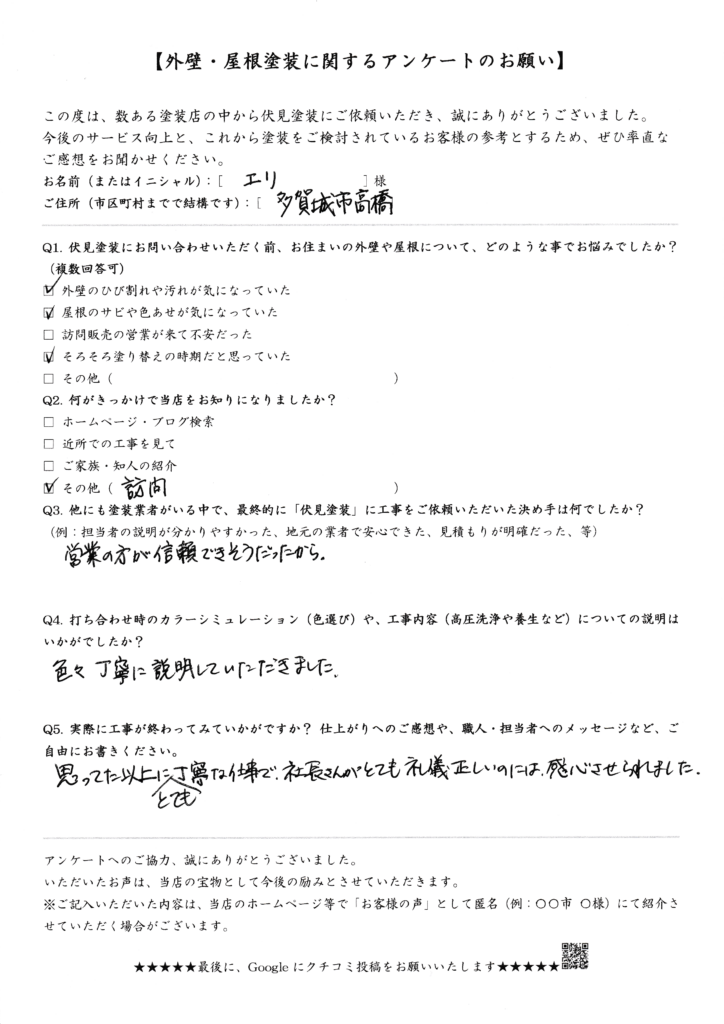 【外壁・屋根塗装に関するアンケートのお願い】
この度は、数ある塗装店の中から伏見塗装にご依頼いただき、誠にありがとうございました。
今後のサービス向上と、これから塗装をご検討されているお客様の参考とするため、ぜひ率直な
ご感想をお聞かせください。
お名前（またはイニシャル）：[ エリ ] 様
ご住所（市区町村までで結構です）：[ 多賀城市高橋
Q1. 伏見塗装にお問い合わせいただく前、お住まいの外壁や屋根について、どのような事でお悩みでしたか？
（複数回答可）
☑ 外壁のひび割れや汚れが気になっていた
☑ 屋根のサビや色あせが気になっていた
□ 訪問販売の営業が来て不安だった
☑ そろそろ塗り替えの時期だと思っていた
□ その他（ ）
Q2. 何がきっかけで当店をお知りになりましたか？
□ ホームページ・ブログ検索
□ 近所での工事を見て
□ ご家族・知人の紹介
☑ その他（ 訪問 ）
Q3. 他にも塗装業者がいる中で、最終的に「伏見塗装」に工事をご依頼いただいた決め手は何でしたか？
（例：担当者の説明が分かりやすかった、地元の業者で安心できた、見積もりが明確だった、等）
営業の方が信頼できそうだったから。
Q4. 打ち合わせ時のカラーシミュレーション（色選び）や、工事内容（高圧洗浄や養生など）についての説明は
いかがでしたか？
色々丁寧に説明していただきました。
Q5. 実際に工事が終わってみていかがですか？ 仕上がりへのご感想や、職人・担当者へのメッセージなど、ご
自由にお書きください。
思ってた以上に丁寧な仕事で、社長さんがとても礼儀正しいのには、感心させられました。
とても
アンケートへのご協力、誠にありがとうございました。
いただいたお声は、当店の宝物として今後の励みとさせていただきます。
※ご記入いただいた内容は、当店のホームページ等で「お客様の声」として匿名（例：〇〇市 〇様）にて紹介さ
せていただく場合がございます。
★★★★★最後に、Google にクチコミ投稿をお願いいたします★★★★★